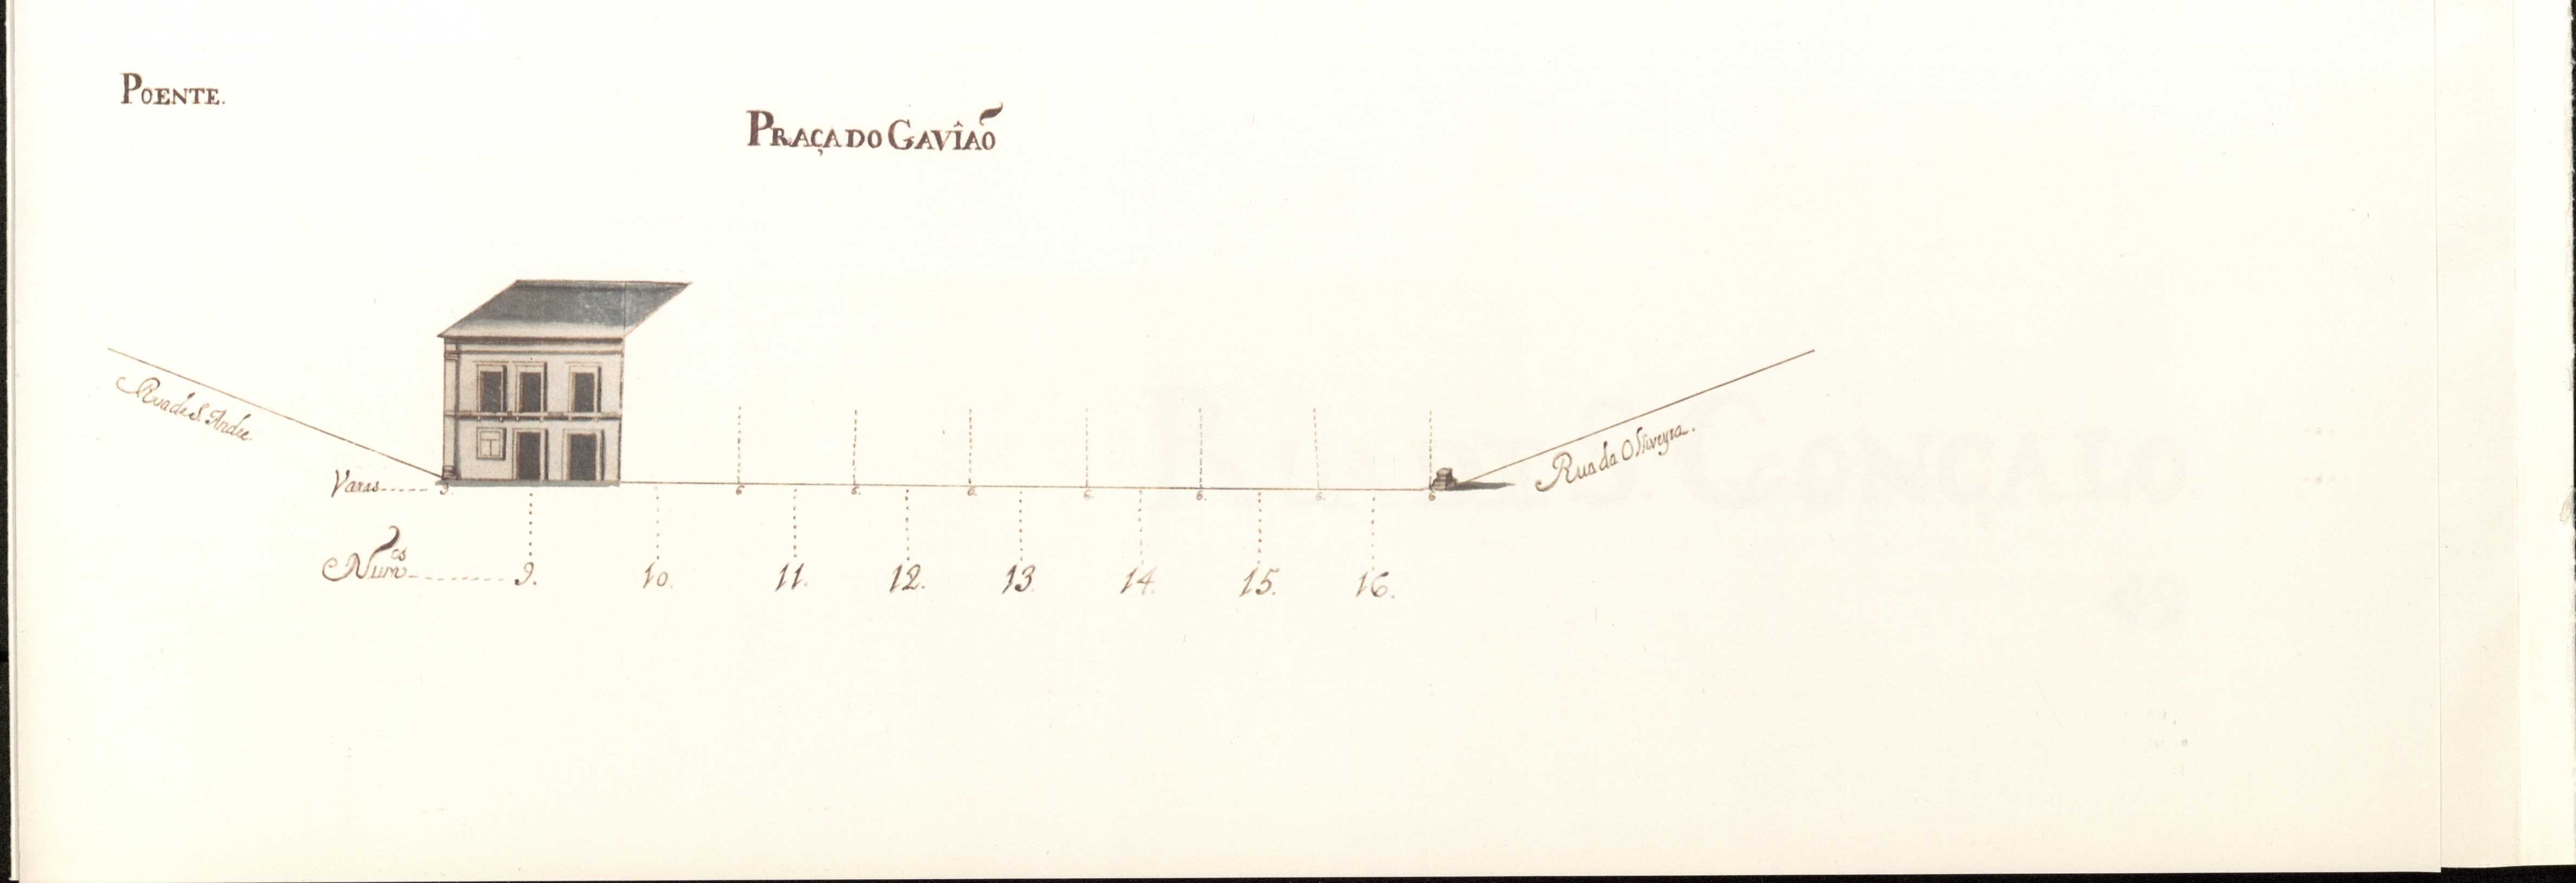 POENTE.
PRAÇA DO GAVÎAÕ
Rua de S. Andre.
Rua da Oliveyra.
Varas...... 9. 6. 6. 6. 6. 6. 6. 6.
Num.os 9. 10. 11. 12. 13. 14. 15. 16.